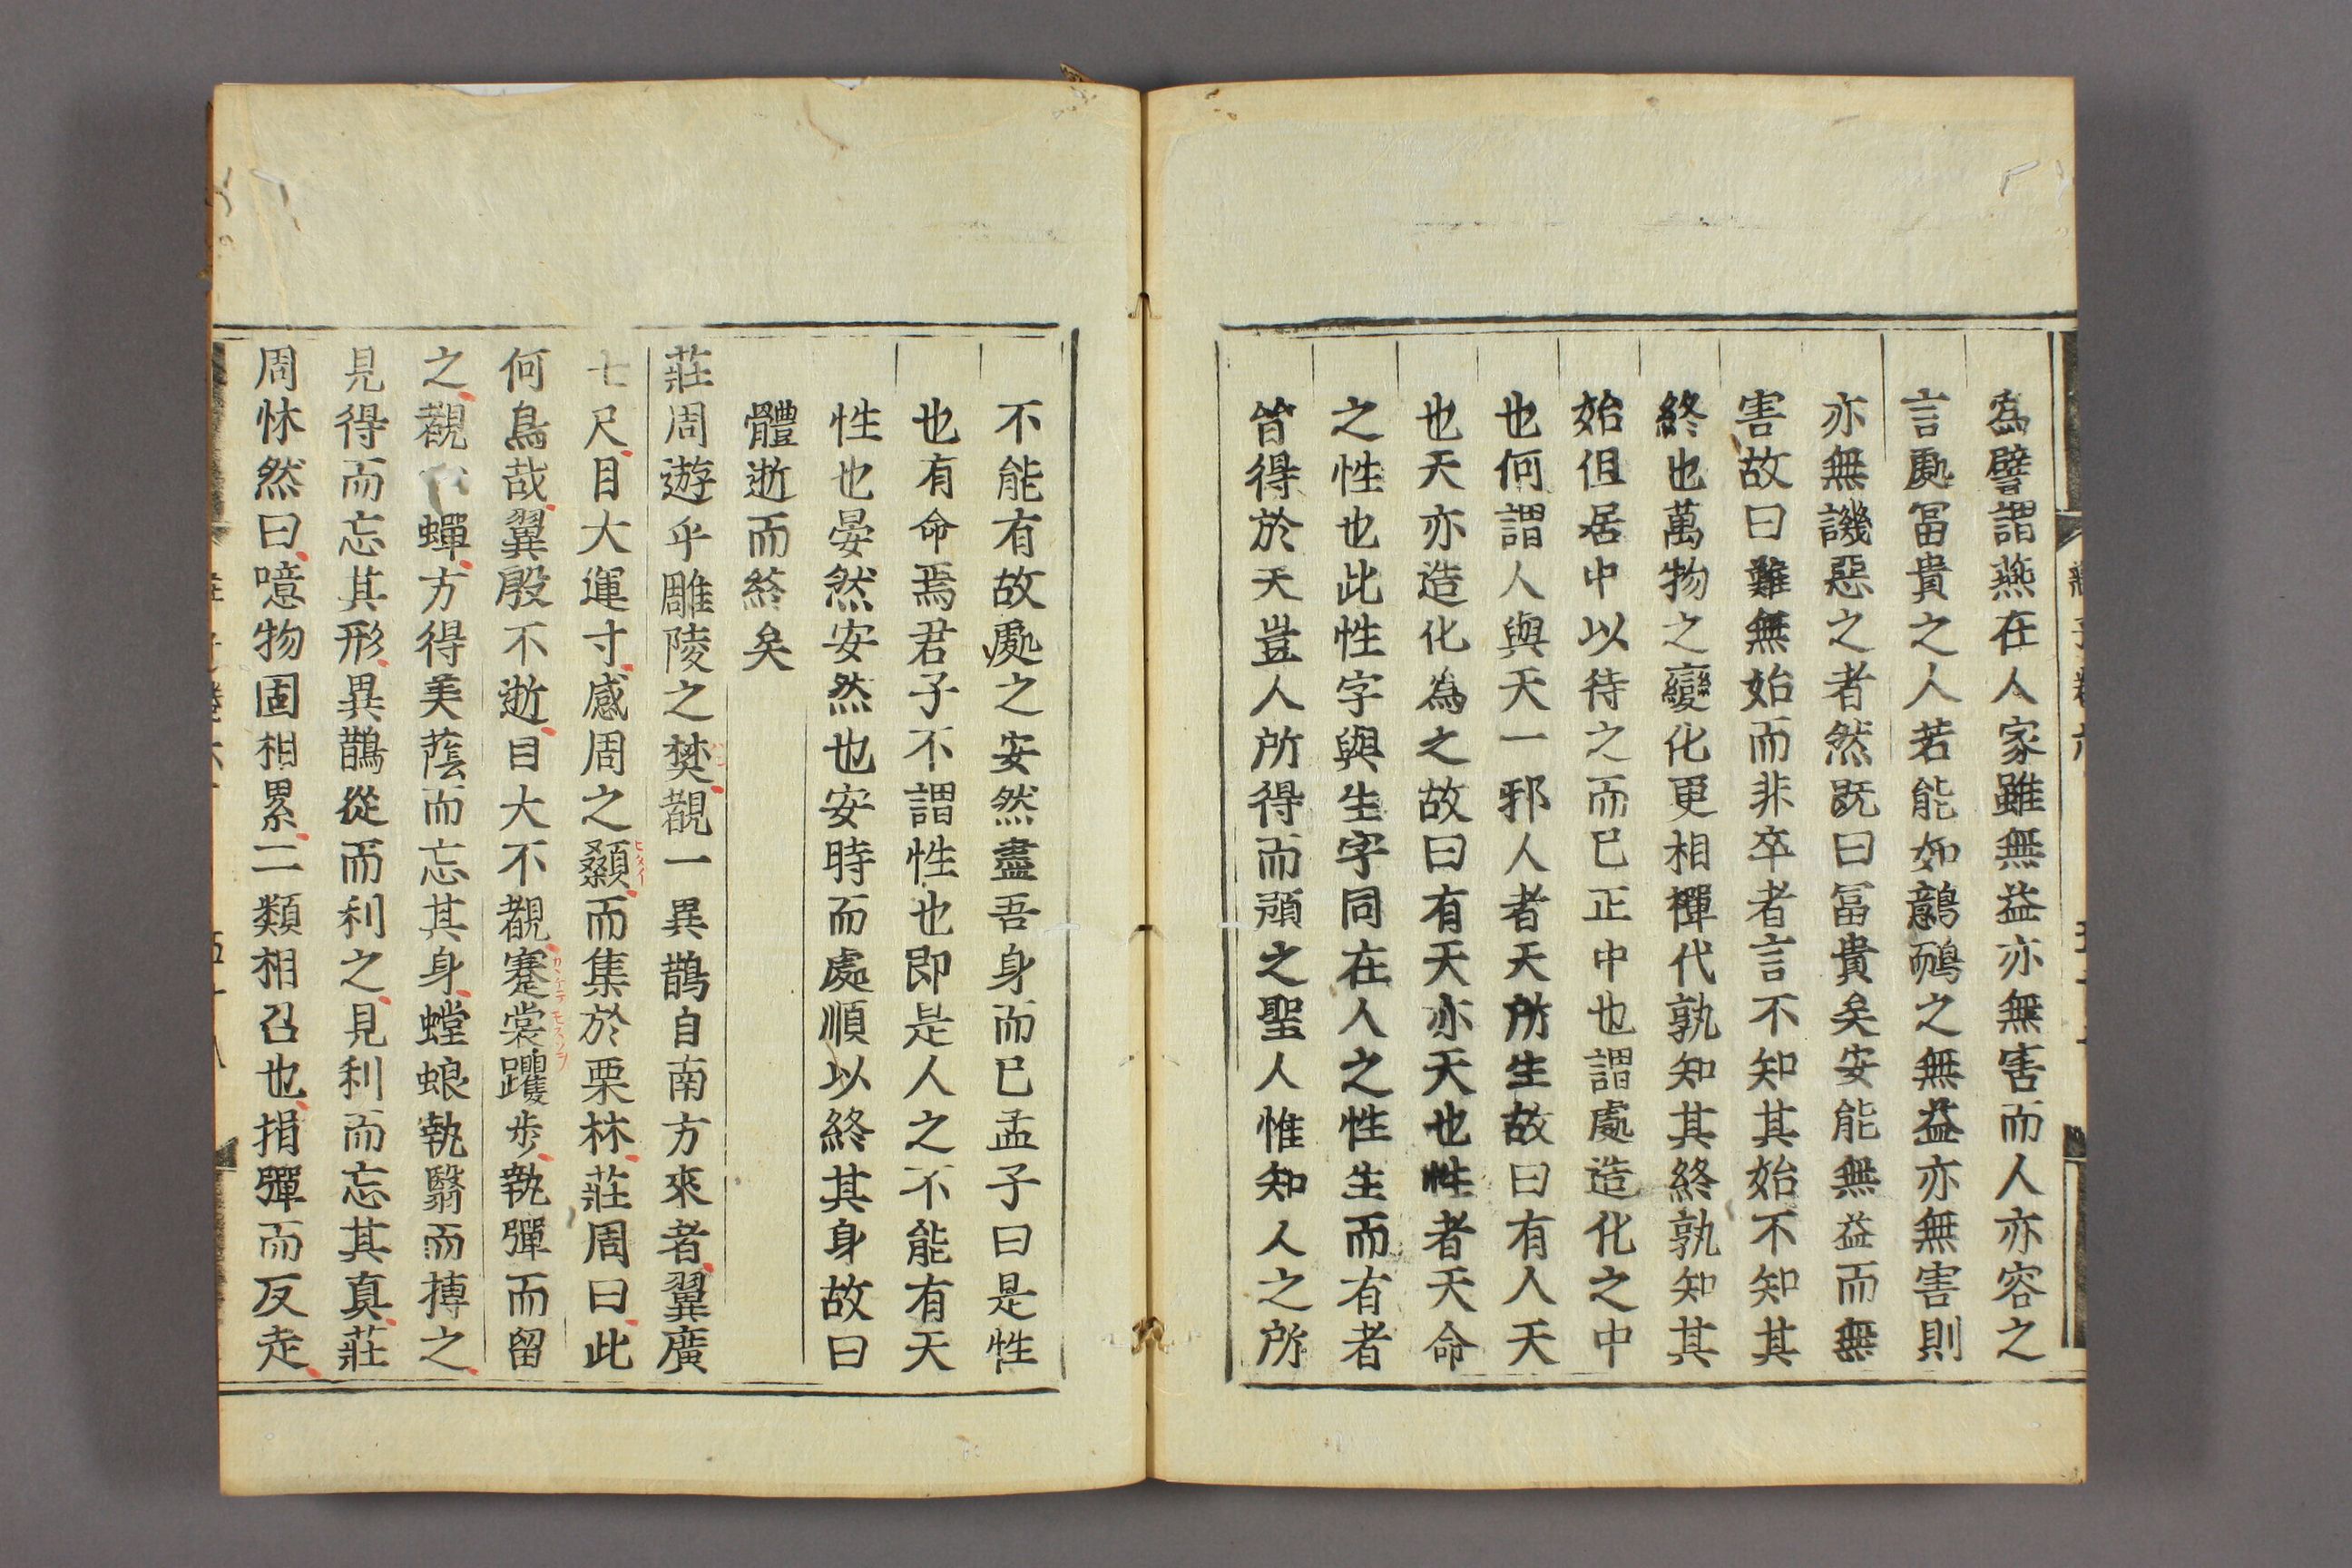 為譬謂燕在人家雖無益亦無害而人亦容之
言處冨貴之人若能如鷾鴯之無益亦無害則
亦無譏惡之者然既曰冨貴矣安能無益而無
害故曰難無始而非卒者言不知其始不知其
終也萬物之變化更相禪代孰知其終孰知其
始但居中以待之而已正中也謂處造化之中
也何謂人與天一邪人者天所生故曰有人天
也天亦造化為之故曰有天亦天也性者天命
之性也此性字與生字同在人之性生而有者
皆得於天豈人所得而預之聖人惟知人之所
不能有故處之安然盡吾身而已孟子曰是性
也有命焉君子不謂性也即是人之不能有天
性也晏然安然也安時而處順以終其身故曰
體逝而終矣
莊周遊乎雕陵之樊覩一異鵲自南方來者翼廣
七尺目大運寸感周之顙而集於栗林莊周曰此
何鳥哉翼殷不逝目大不覩蹇裳躩步執彈而留
之覩蟬方得美蔭而忘其身螳蜋執翳而搏之
見得而忘其形異鵲從而利之見利而忘其真莊
周怵然曰噫物固相累二類相召也捐彈而反走